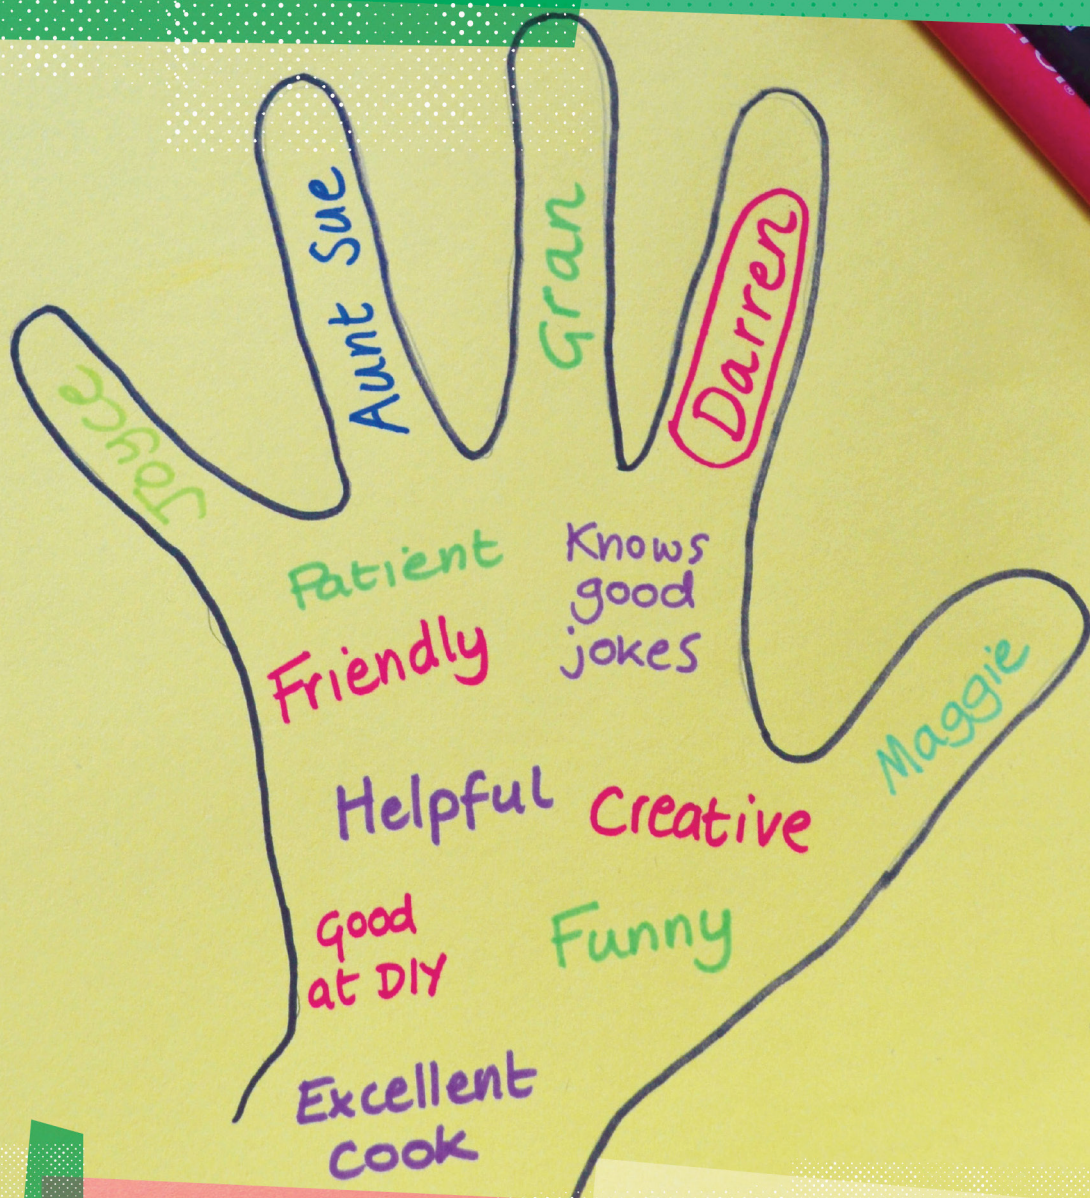 Joyce
Aunt Sue
Gran
Darren
Maggie
Patient
Knows
good
jokes
Friendly
Helpful
Creative
Good
at DIY
Funny
Excellent
cook